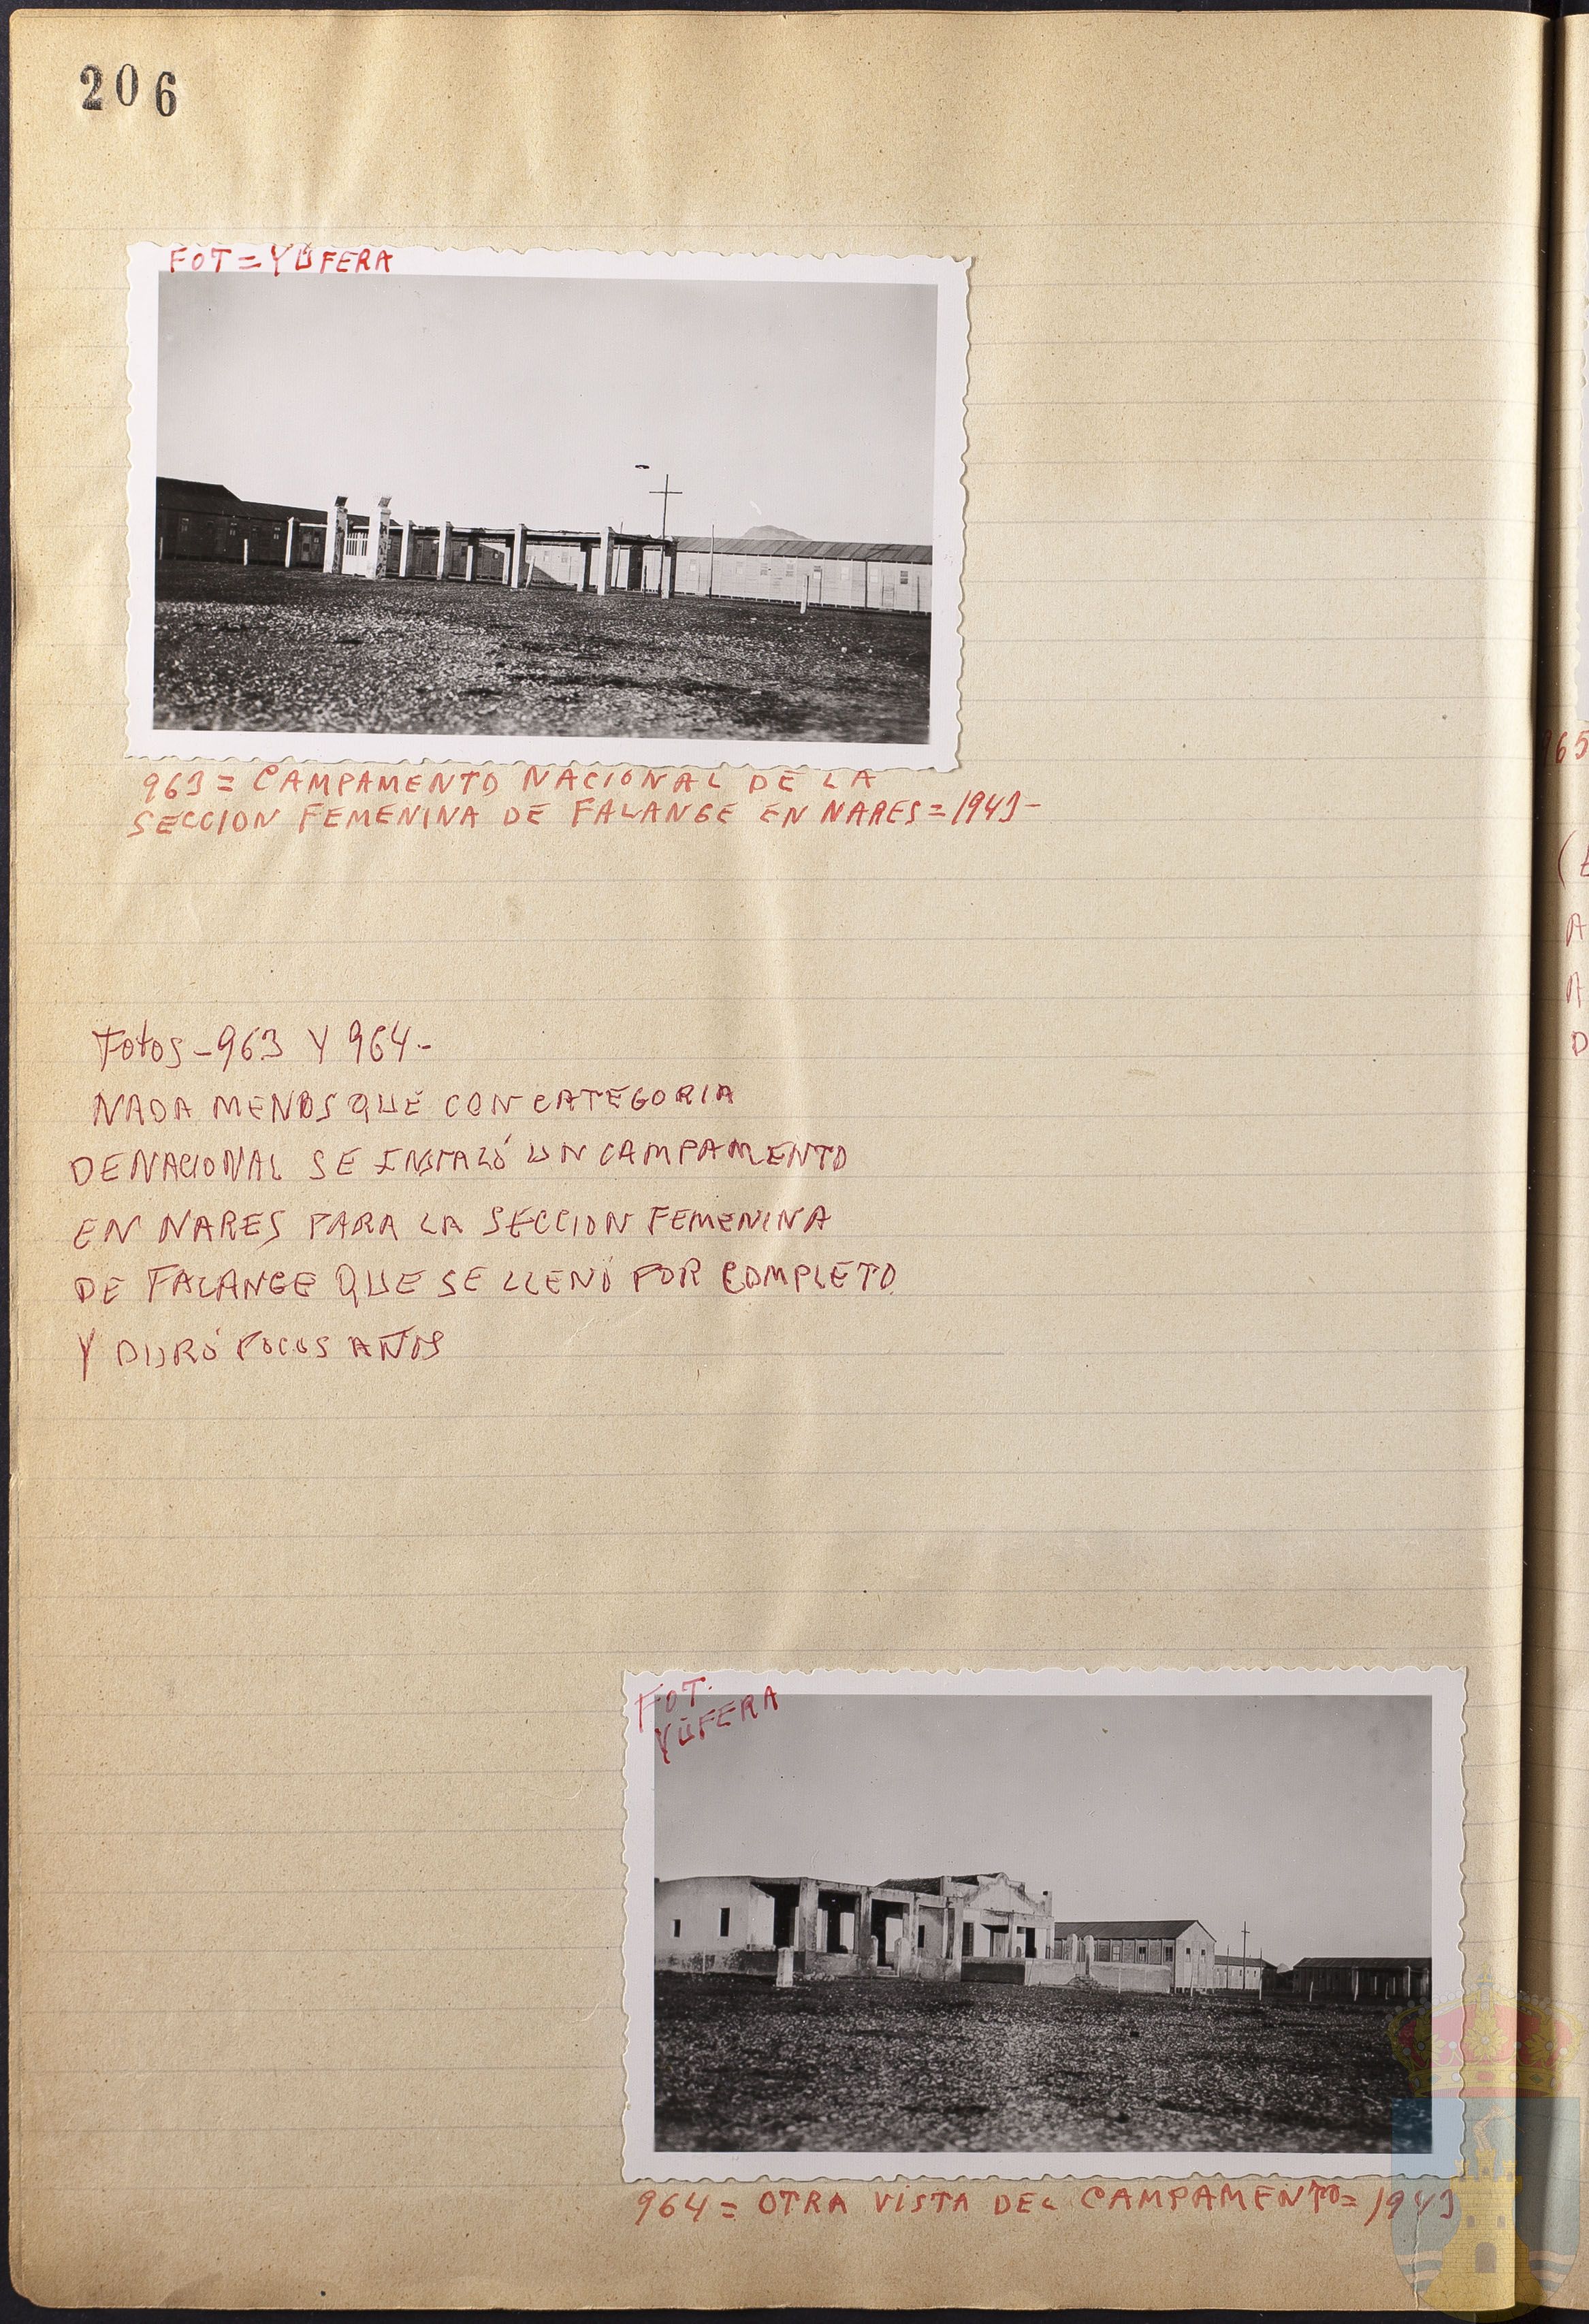 206
FOT = YÚFERA
963 = CAMPAMENTO NACIONAL DE LA
SECCION FEMENINA DE FALANGE EN NARES = 1943 -
Fotos - 963 Y 964 -
NADA MENOS QUE CON CATEGORIA
DE NACIONAL SE INSTALÓ UN CAMPAMENTO
EN NARES PARA LA SECCION FEMENINA
DE FALANGE QUE SE LLENÓ POR COMPLETO
Y DURÓ POCOS AÑOS
FOT.
YÚFERA
964 = OTRA VISTA DEL CAMPAMENTO = 1943